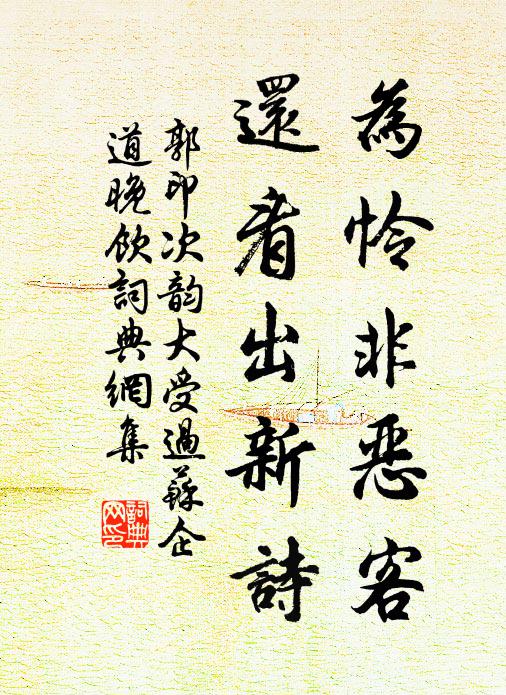 為怜非惡客
還看出新詩
郭印次韵大受過蘇企
道晚飲詞典網集
詞典
网印